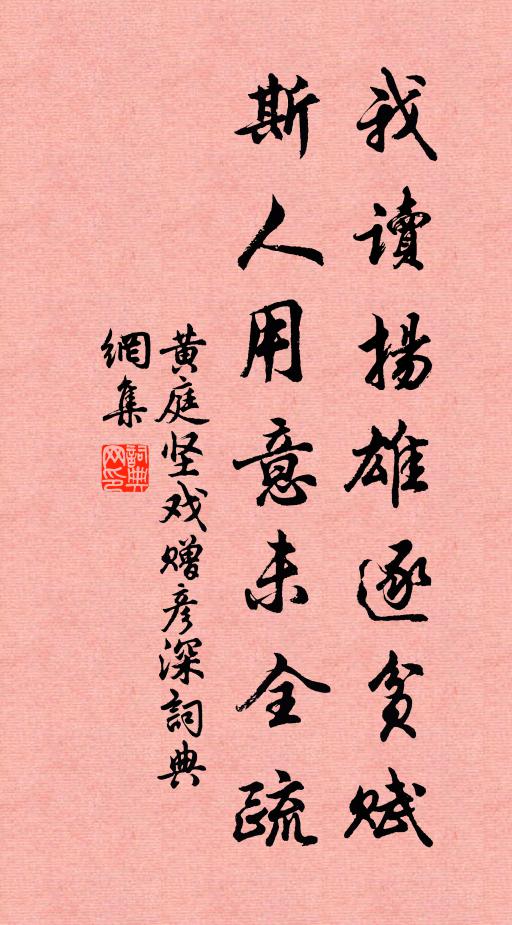 我讀揚雄逐貧賦
斯人用意未全疏
黄庭坚戏赠彦深詞典
網集
詞典
网印